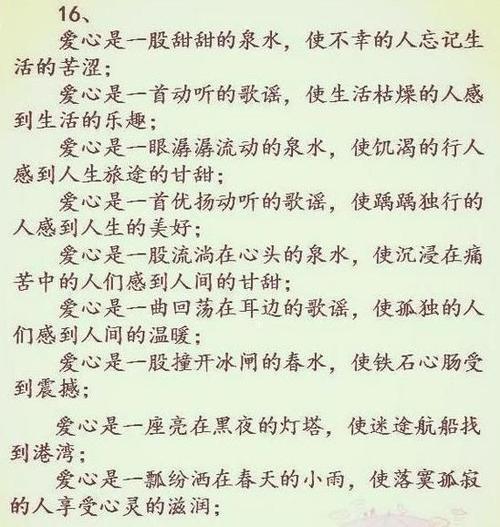 16、
爱心是一股甜甜的泉水，使不幸的人忘记生
活的苦涩；
爱心是一首动听的歌谣，使生活枯燥的人感
到生活的乐趣；
爱心是一眼潺潺流动的泉水，使饥渴的行人
感到人生旅途的甘甜；
爱心是一首优扬动听的歌谣，使踽踽独行的
人感到人生的美好；
爱心是一股流淌在心头的泉水，使沉浸在痛
苦中的人们感到人间的甘甜；
爱心是一曲回荡在耳边的歌谣，使孤独的人
们感到人间的温暖；
爱心是一股撞开冰闸的春水，使铁石心肠受
到震撼；
爱心是一座亮在黑夜的灯塔，使迷途航船找
到港湾；
爱心是一瓢纷洒在春天的小雨，使落寞孤寂
的人享受心灵的滋润；